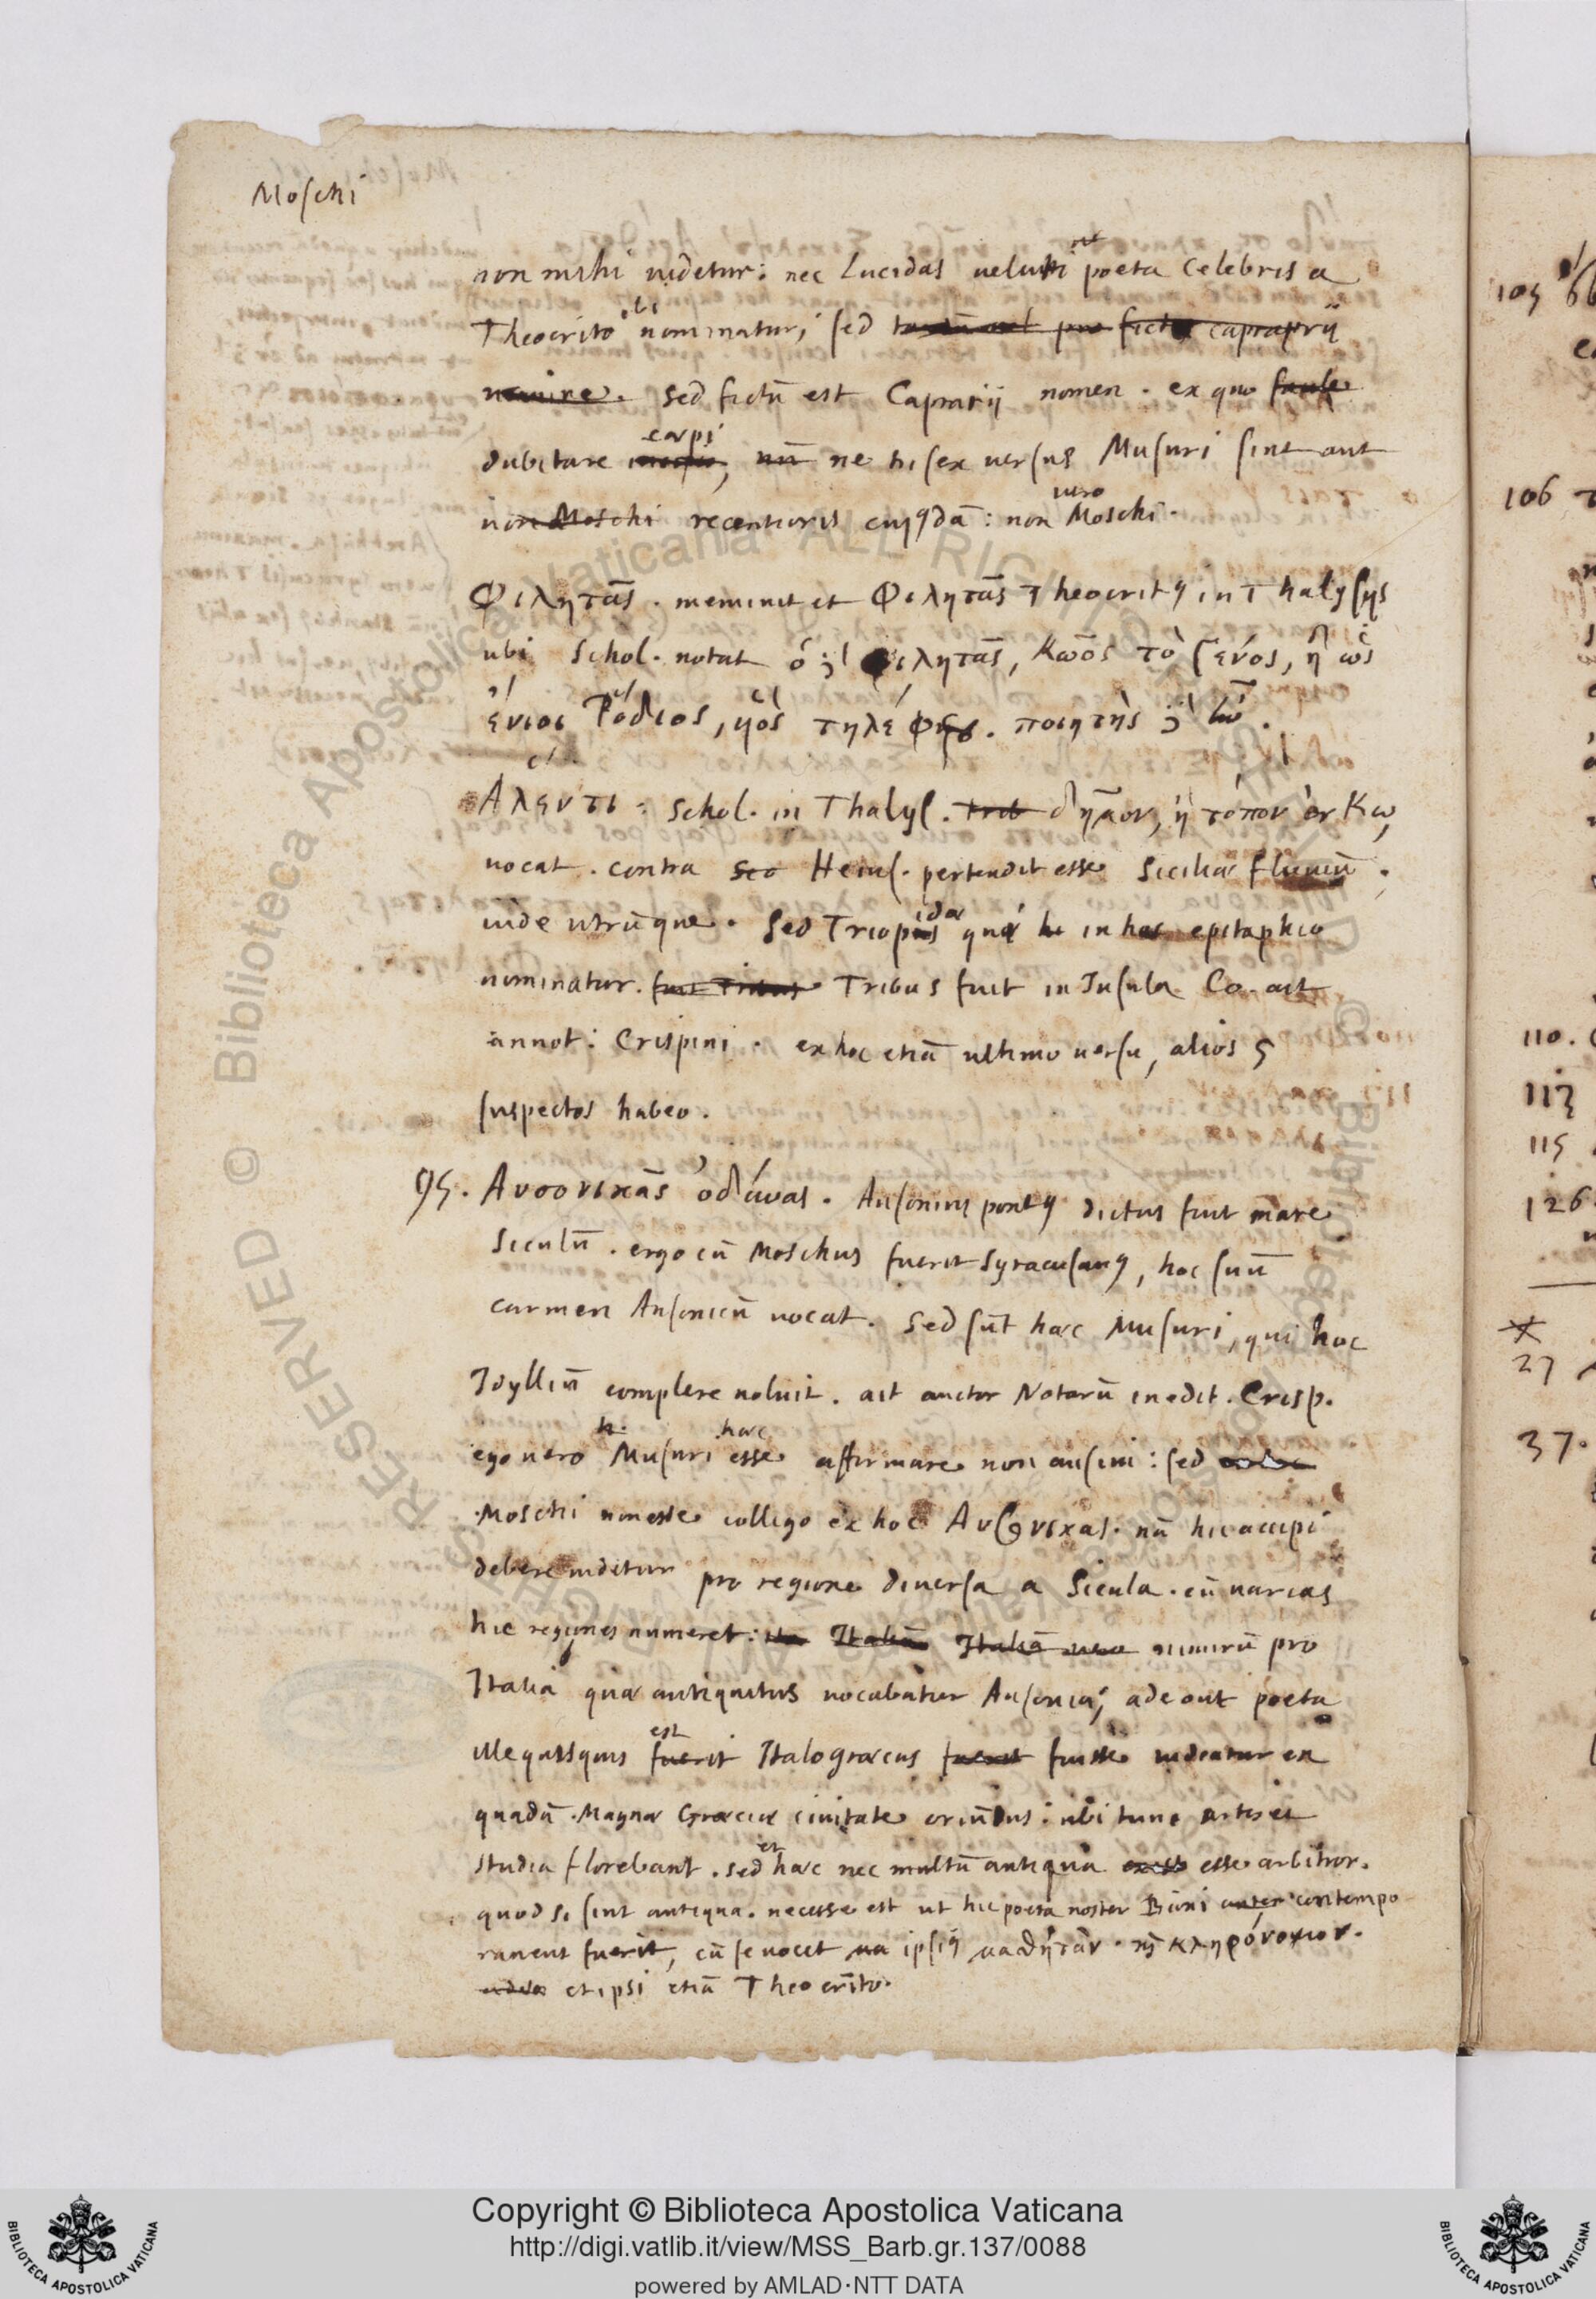 Moschi
non mihi uidetur: nec Lucidas ueluti ut poeta celebris a
Theocrito ibi nominatur; sed fictus capraprij
sed fictũ est Caprarij nomen. ex quo
dubitare cœpi, ne hi sex uersus Musuri sint aut
non Moschi recentioris cuiꝰdã: non uero Moschi.
Φιλητᾶς. meminit et Φιλητᾶς Theocritꝰ in Thalysijs
ubi Schol. notat ὁ Φιλητᾶς, Κῶος τὸ γένος, ἢ ὡς
ἔνιοι Ῥόδιος, υἱὸς τηλέφου. ποιητὴς
Ἅλεντι: Schol. in Thalys. δῆμον, ἢ τόπον ἐν Κῳ,
uocat. contra Heins. pertendit esse Siciliæ fluuiũ.
uide utrũque. Sed Triopidæ quæ in hoc epitaphio
nominatur. Tribus fuit in Insula Co. ait
annot: Crispini. ex hoc etiã ultimo uersu, alios 5
suspectos habeo.
95. Αυσονικᾶς ὀδύνας. Ausonius pontꝰ dictus fuit mare
Siculũ. ergo cũ Moschus fuerit Syracusanꝰ, hoc suũ
carmen Ausonicũ uocat. Sed sũt hæc Musuri, qui hoc
Idylliũ complere uoluit. ait auctor Notarũ in edit. Crisp.
ego uero Musuri hæc esse affirmare non ausim: sed
Moschi non esse colligo ex hoc Αυσονικας. nã hic accipi
debere uidetur pro regione diuersa a Sicula. cũ uarias
hic regiones numeret: Italiã Italiã nimirũ pro
Italia quæ antiquitus uocabatur Ausonia; adeo ut poeta
ille quisquis fuerit est Italogræcus fuerit fuisse uideatur ex
quadã Magnæ Græciæ ciuitate oriũdus: ubi tunc artes et
studia florebant. sed et hæc nec multũ antiqua esse arbitror.
quod si sint antiqua. necesse est ut hic poeta noster Bioni contempo
raneus fuerit, cũ se uocet ipsiꝰ μαθητὰν. καὶ κληρόνομον.
et ipsi etiã Theocrito.
105
106
110.
113
115
126
27
37.
Copyright © Biblioteca Apostolica Vaticana
http://digi.vatlib.it/view/MSS_Barb.gr.137/0088
powered by AMLAD·NTT DATA
BIBLIOTECA APOSTOLICA VATICANA
BIBLIOTECA APOSTOLICA VATICANA